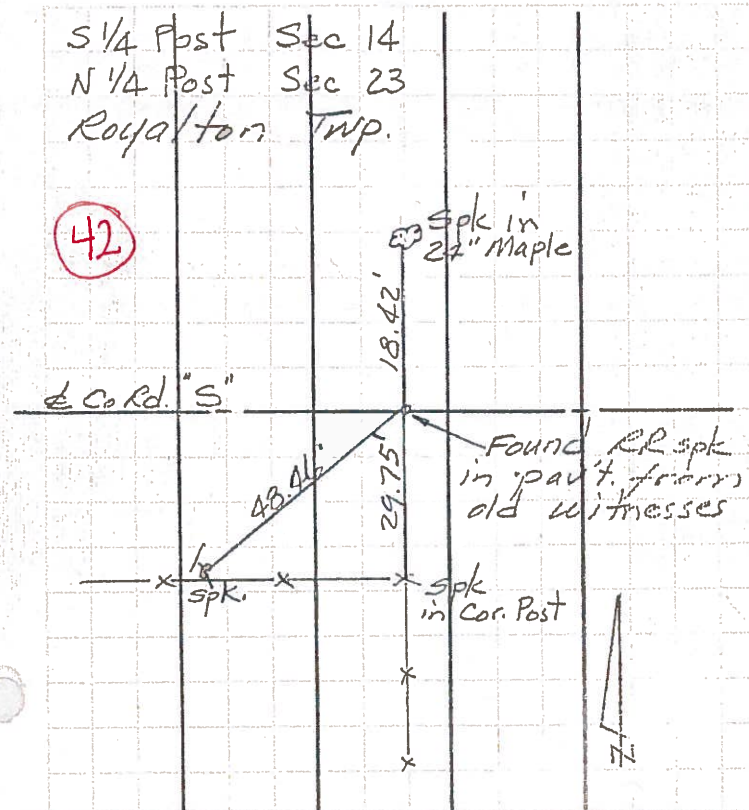 S 1/4 Post Sec 14
N 1/4 Post Sec 23
Royalton Twp.
42
Spk in
24" Maple
18.42'
℄ Co Rd. "S"
Found RR spk
in pav't. from
old witnesses
48.46'
29.75'
spk.
Spk
in Cor. Post
N